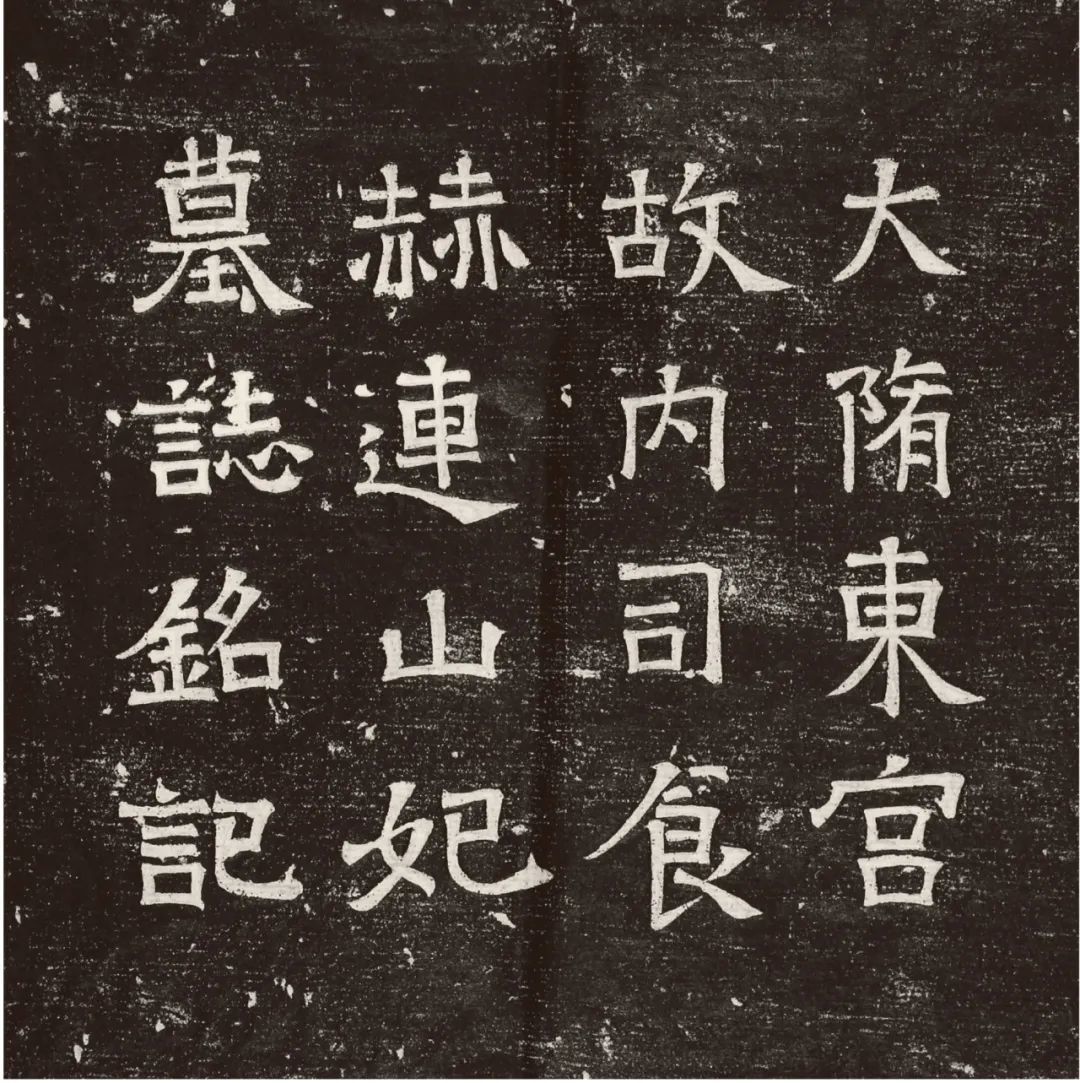 大隋東宫
故内司食
赫連山妃
墓誌銘記